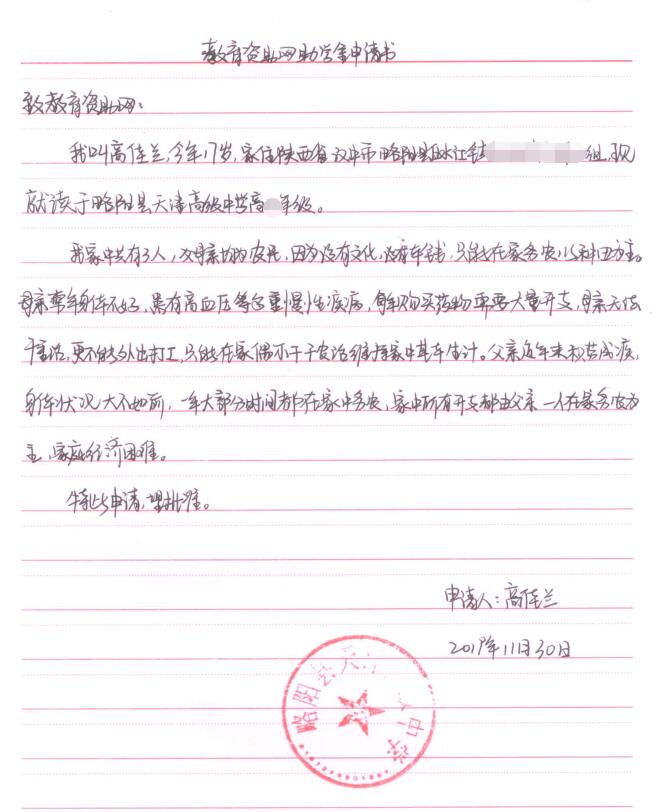 教育资助网助学金申请书
致教育资助网:
我叫高佳兰,今年17岁,家住陕西省汉中市略阳县 江镇 组,现
就读于略阳县天津高级中学高 年级。
我家中共有3人,父母亲均为农民,因为没有文化,没有本钱,只能在家务农以种田为主。
母亲常年身体不好,患有高血压等多重慢性疾病,每年购买药物需要大量开支,母亲无法
干重活,更不能外出打工,只能在家偶尔干干农活维持家中基本生计。父亲近年来积劳成疾,
身体状况大不如前,一年大部分时间都在家中务农,家中所有开支都由父亲一人在家务农为
主,家庭经济困难。
特此申请,望批准。
申请人:高佳兰
年11月30日
略阳县天 中学